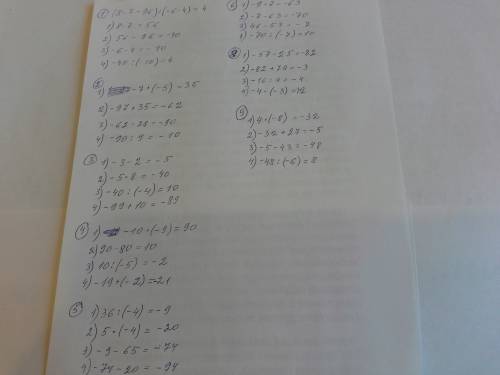 ① (8·7-96):(-6-4)=4
1) 8·7=56
2) 56-96=-40
3) -6-4=-10
4) -40:(-10)=4
②
1) -7·(-5)=35
2) -97+35=-62
3) -62-28=-90
4) -90:9=-10
③ 1) -3-2=-5
2) -5·8=-40
3) -40:(-4)=10
4) -99+10=-89
④ 1) -10·(-9)=90
2) 90-80=10
3) 10:(-5)=-2
4) -19+(-2)=-21
⑤ 1) 36:(-4)=-9
2) 5·(-4)=-20
3) -9-65=-74
4) -74-20=-94
⑥ 1) -9·7=-63
2) -7-63=-70
3) 46-53=-7
4) -70:(-7)=10
⑧ 1) -57-25=-82
2) -82+79=-3
3) -16:4=-4
4) -4·(-3)=12
⑨ 1) 4·(-8)=-32
2) -32+27=-5
3) -5-43=-48
4) -48:(-6)=8